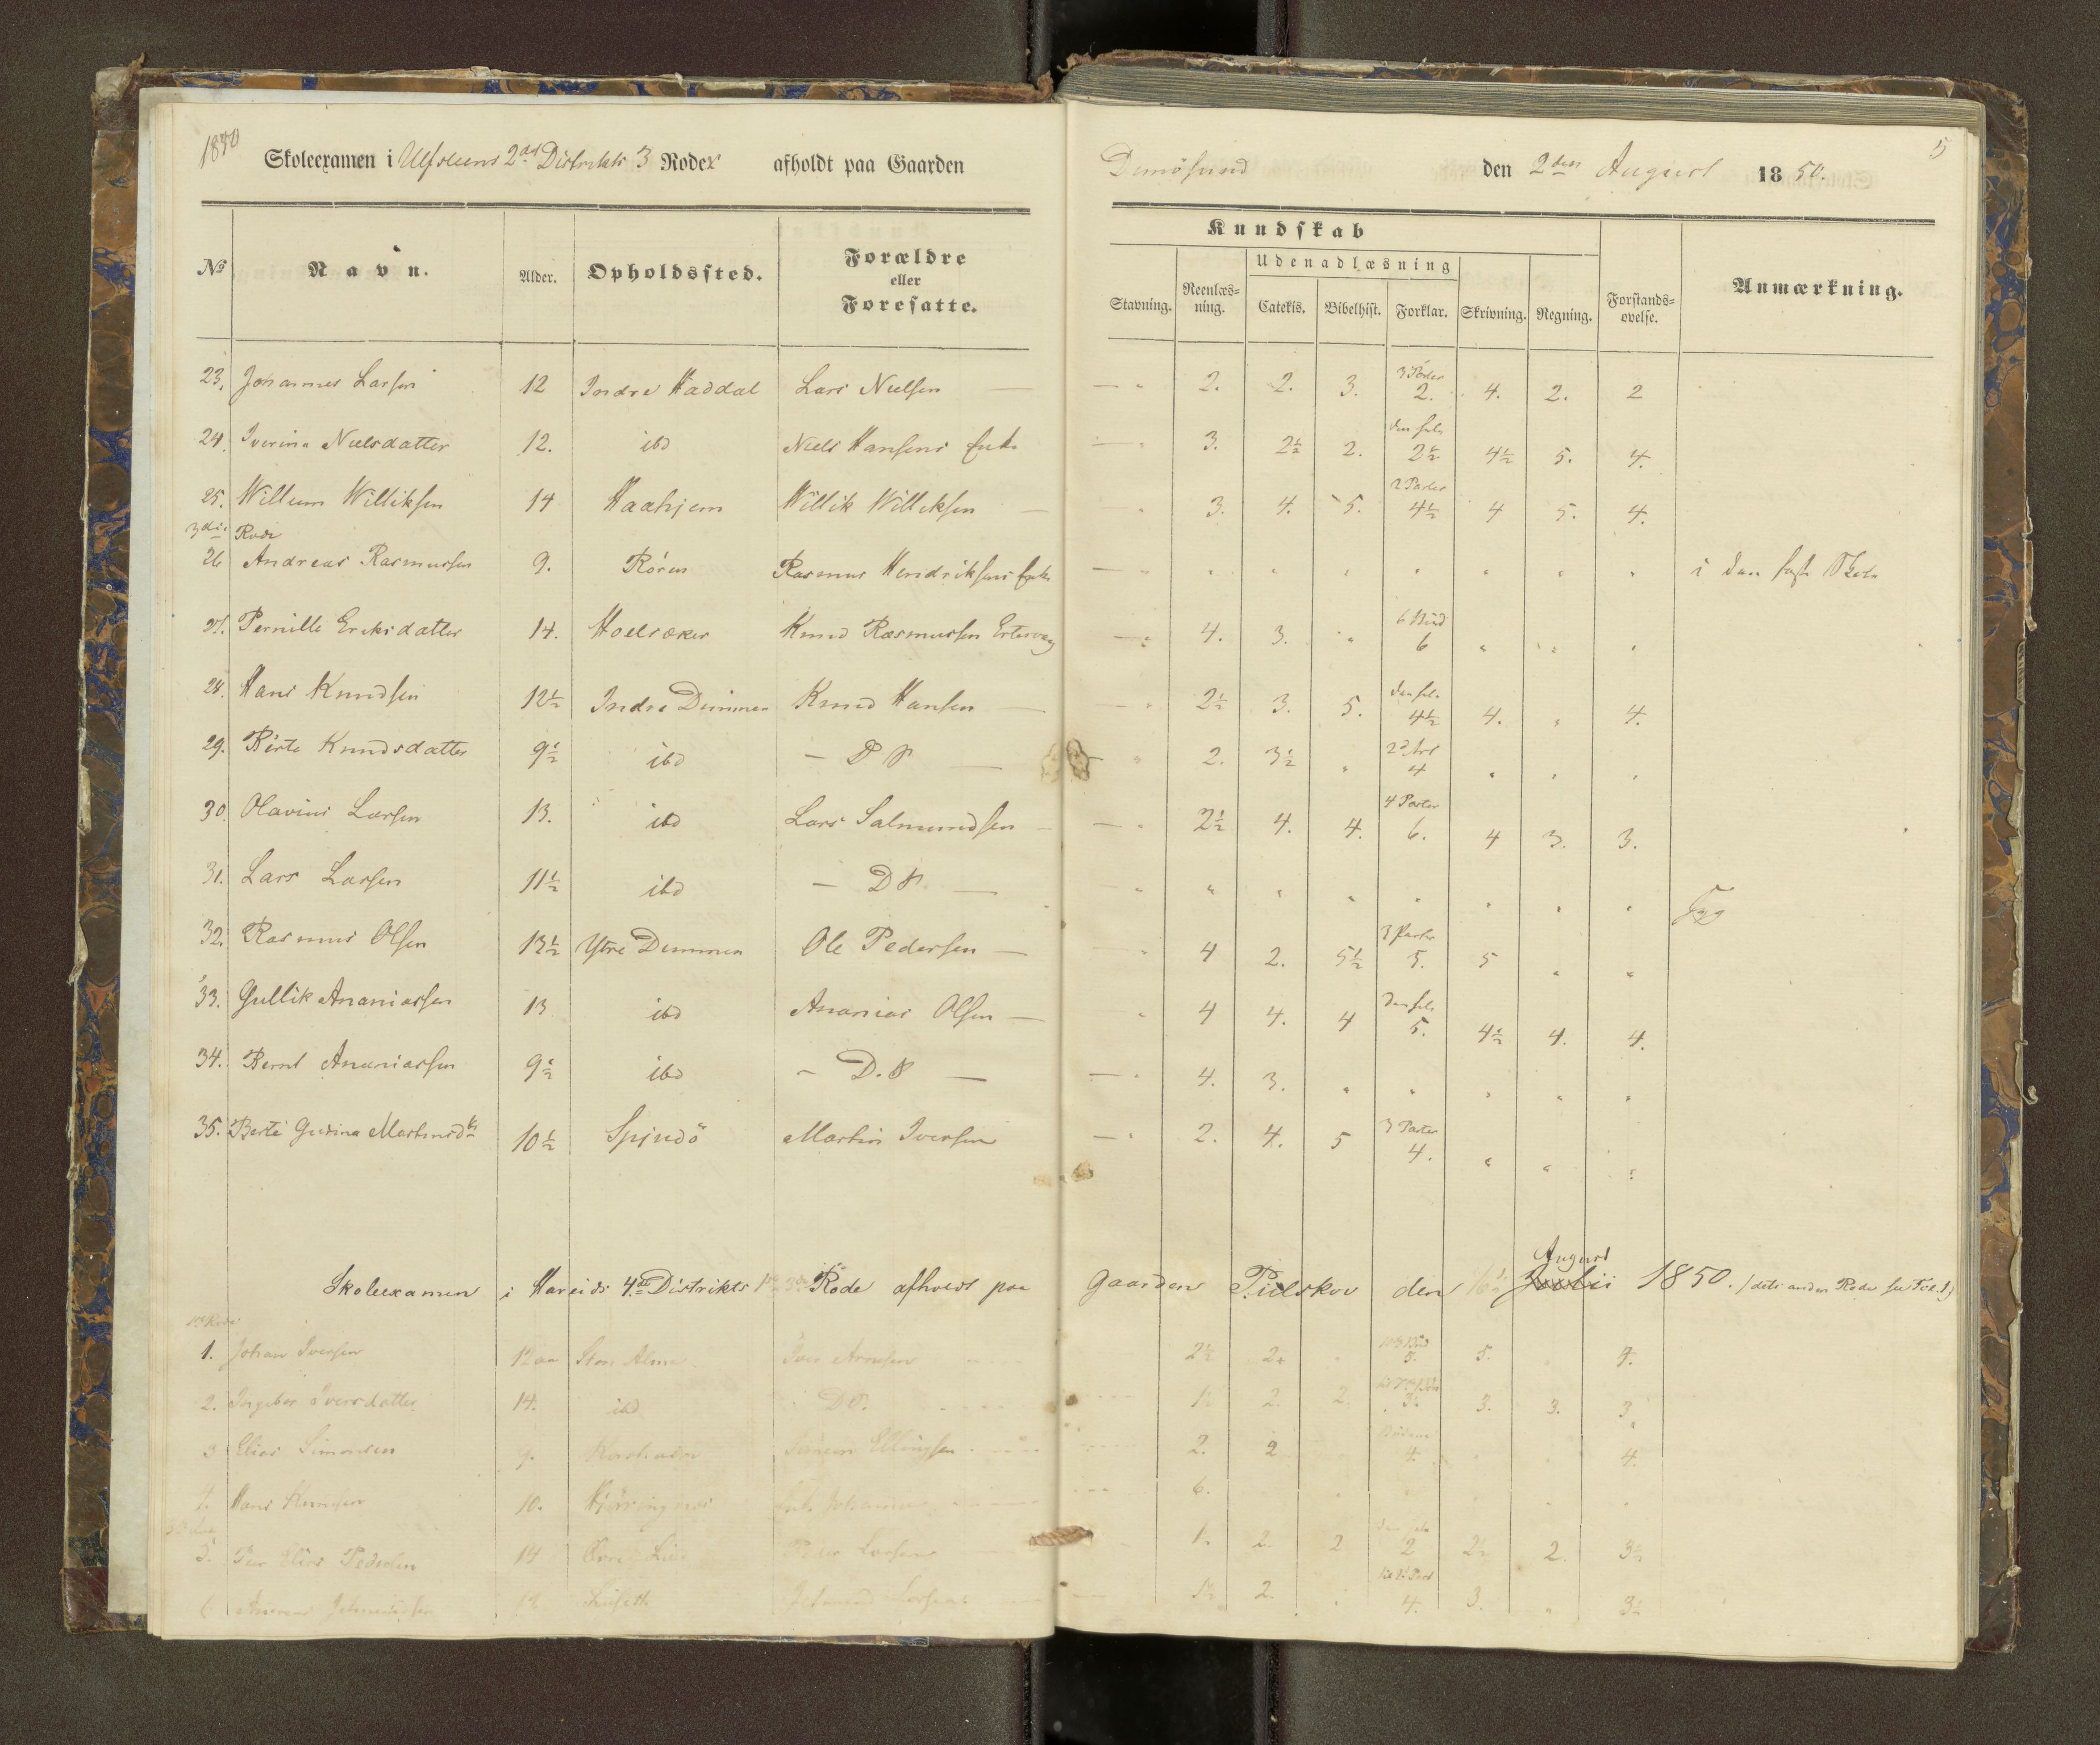 1850
Skoleexamen i Ulfsteens 2det Distrikts 3 Roder afholdt paa Gaarden Dimösund den 2den August 1850.
5
Kundskab
Udenadlæsning
No Navn. Alder. Opholdssted. Forældre eller Foresatte. Stavning. Reenlæs=ning. Catekis. Bibelhist. Forklar. Skrivning. Regning. Forstands=ovelse. Anmærkning.
23. Johannes Larsen 12 Indre Haddal Lars Nielsen — " 2. 2. 3. 3 Parter 2. 4. 2. 2
24. Iverina Nielsdatter 12. ibd Niels Hansens Enke — " 3. 2½ 2. den hele 2½ 4½ 5. 4.
25. Willum Williksen 14 Haahjem Willik Williksen — " 3. 4. 5. 2 Parter 4½ 4 5. 4.
3die Rode
26 Andreas Rasmussen 9. Rören Rasmus Hendriksens Enke — " " " " " " " " i den faste Skole
27. Pernille Eriksdatter 14. Hoelsæker Knud Rasmussen — " 4. 3. " 6 Bud 6 " " "
28. Hans Knudsen 12½ Indre Dimmen Knud Hansen — " 2½ 3. 5. den hele 4½ 4. " 4.
29. Berte Knudsdatter 9½ ibd — D° — " 2. 3½ " 4 " " "
30. Olavius Larsen 13. ibd Lars Salmundsen — " 2½ 4. 4. 4 Parter 6. 4 3. 3.
31. Lars Larsen 11½ ibd — D° — " " " " " " " " Syg
32. Rasmus Olsen 13½ Ytre Dimmen Ole Pedersen — " 4 2. 5½ 3 Parter 5. 5 " "
33. Gullik Ananiassen 13 ibd Ananias Olsen — " 4 4. 4 den hele 5. 4½ 4. 4.
34. Bernt Ananiassen 9½ ibd — D.° — — " 4. 3. " " " " "
35. Berte Gurina Martinsdtr 10½ Spjudö Martin Iversen — " 2. 4. 5 3 Parter 4. " " "
August
Skoleexamen i Hareids 4de Distrikts Rode afholdt paa Gaarden Pilskov den 16de Julii 1850. /dets anden Rode see Fol. 1)
1ste Rode
1. Johan Iversen 12 Alme Iver Arnesen 2½ 2. 5. 5. 4.
2. Ingebor Iversdatter 14. ibd D°. 1½ 2. 2 3. 3. 3. 3
3 Elias Simonsen 9. Simon Ellingsen 2. 2 4. 4.
4. Hans Knudsen 10. Hjöringnes Enke Johanne 6.
5. Peer Elias Pedersen 14 Lied Peder Larsen 1. 2. 2 den hele 2 2½ 2. 3½
6 Andreas 12 Larsen 1½ 2. 4. 3. " 3½